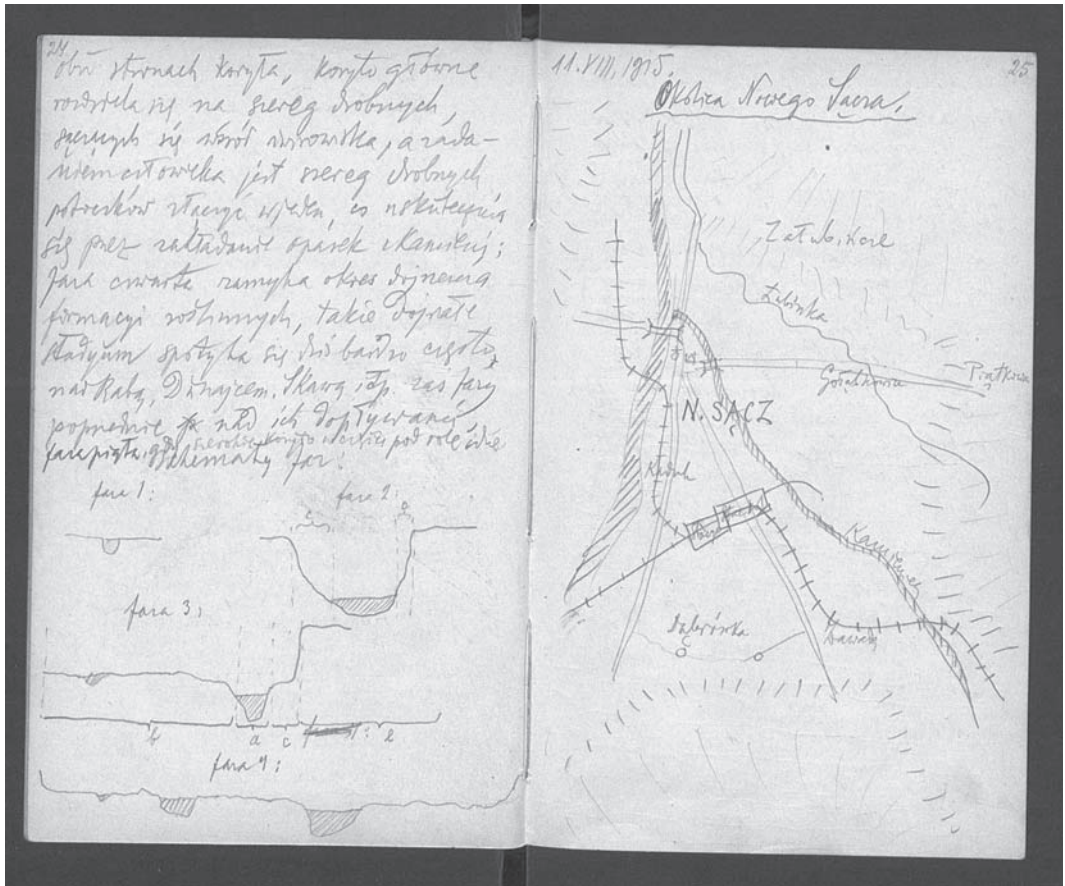 24
obu stronach koryta, koryto główne
rozdziela się na szereg drobnych,
sączących się wśród żwirowiska, a zada-
niem człowieka jest szereg drobnych
potoczków złączyć w jeden, co uskutecznia
się przez zakładanie opasek z kamieni;
faza czwarta zamyka okres
formacyi roślinnych, takie dojrzałe
stadyum spotyka się dziś bardzo często
nad Rabą, Dunajcem, Skawą itp. zaś fazy
poprzednie nad ich dopływami
faza piąta, szerokie koryto pod rolę idzie
Schematy faz:
faza 1:
faza 2:
c
a
faza 3:
b
a
c
e
faza 4:
11. VIII, 1915.
25
Okolica Nowego Sącza.
Załubińcze
Łubinka
Gorzkowska
Piątkowa
N. SĄCZ
Kaduk
Kamienica
Dąbrówka
Zawada